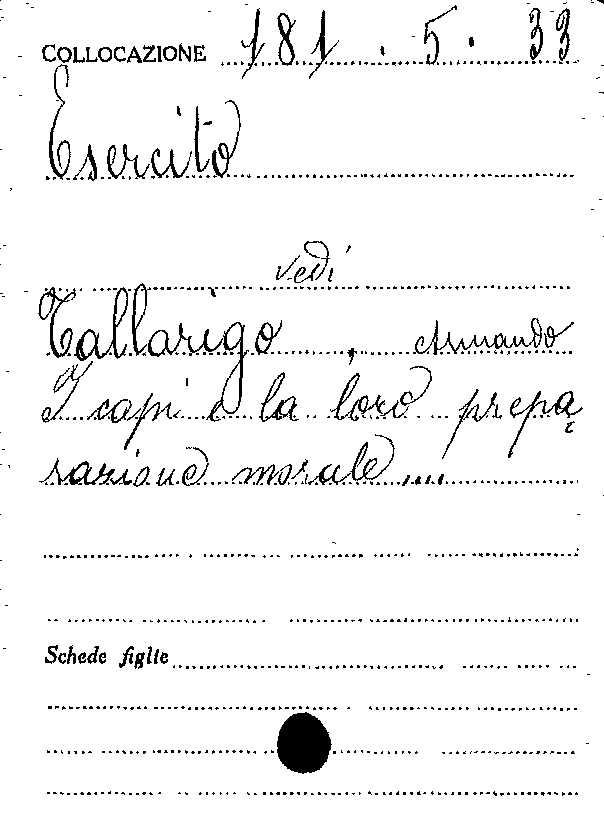 COLLOCAZIONE 181.5.33
Esercito
vedi
Tallarigo, Armando
I capi e la loro prepa=
razione morale....
Schede figlie